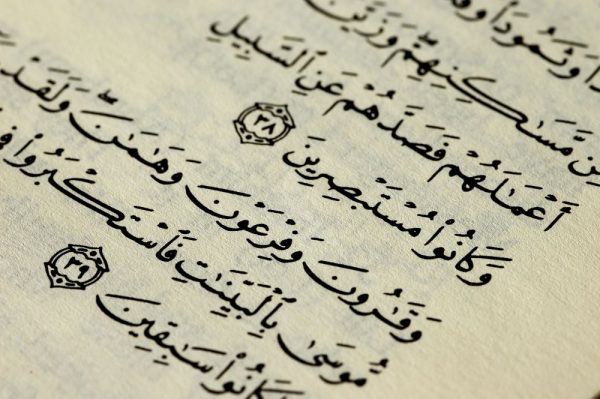 وَثَمُودَا۟
مَّسَـٰكِنِهِمْ ۖ وَزَيَّنَ
أَعْمَـٰلَهُمْ فَصَدَّهُمْ عَنِ ٱلسَّبِيلِ
وَكَانُوا۟ مُسْتَبْصِرِينَ ٣٨
وَقَـٰرُونَ وَفِرْعَوْنَ وَهَـٰمَـٰنَ ۖ وَلَقَدْ
مُّوسَىٰ بِٱلْبَيِّنَـٰتِ فَٱسْتَكْبَرُوا۟
كَانُوا۟ سَـٰبِقِينَ ٣٩